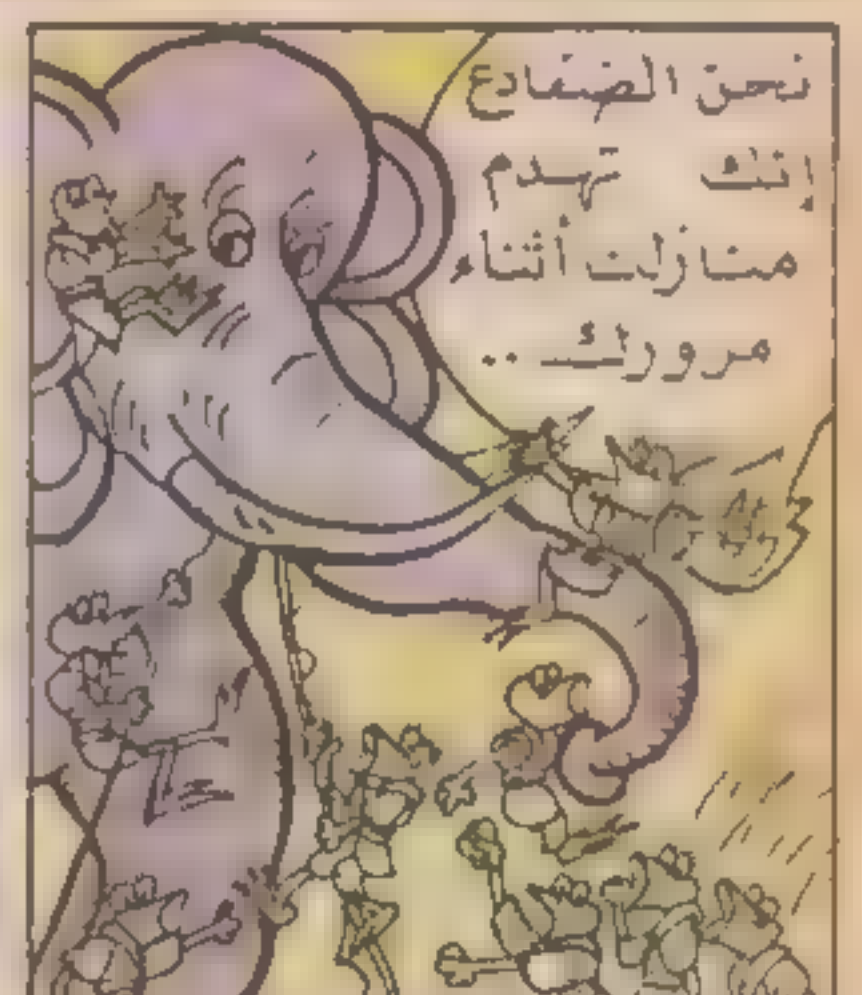 نحن الضفادع
إنك تهدم
منازلنا أثناء
مرورك ..